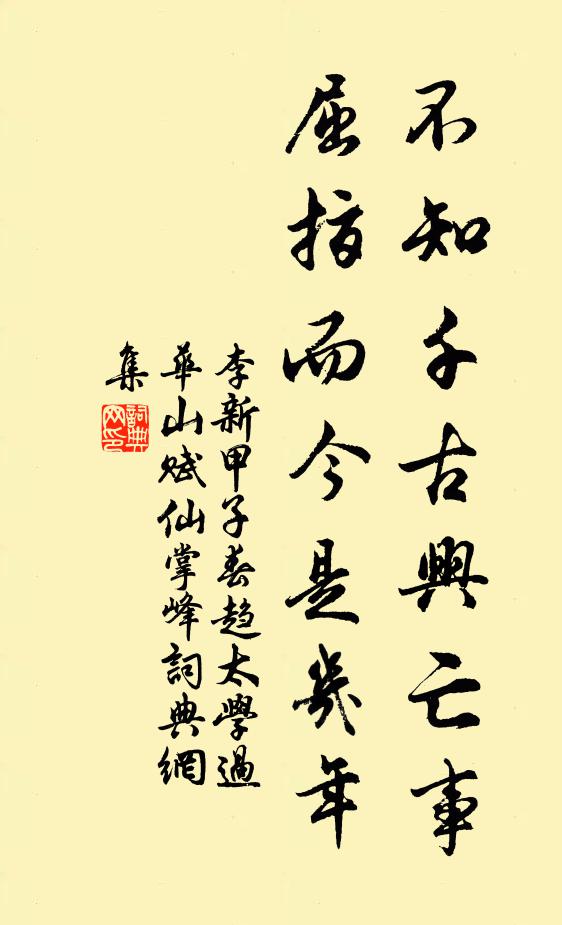 不知千古興亡事
屈指而今是幾年
李新甲子春趨太學過
華山賦仙掌峰詞典網
集
詞典网印